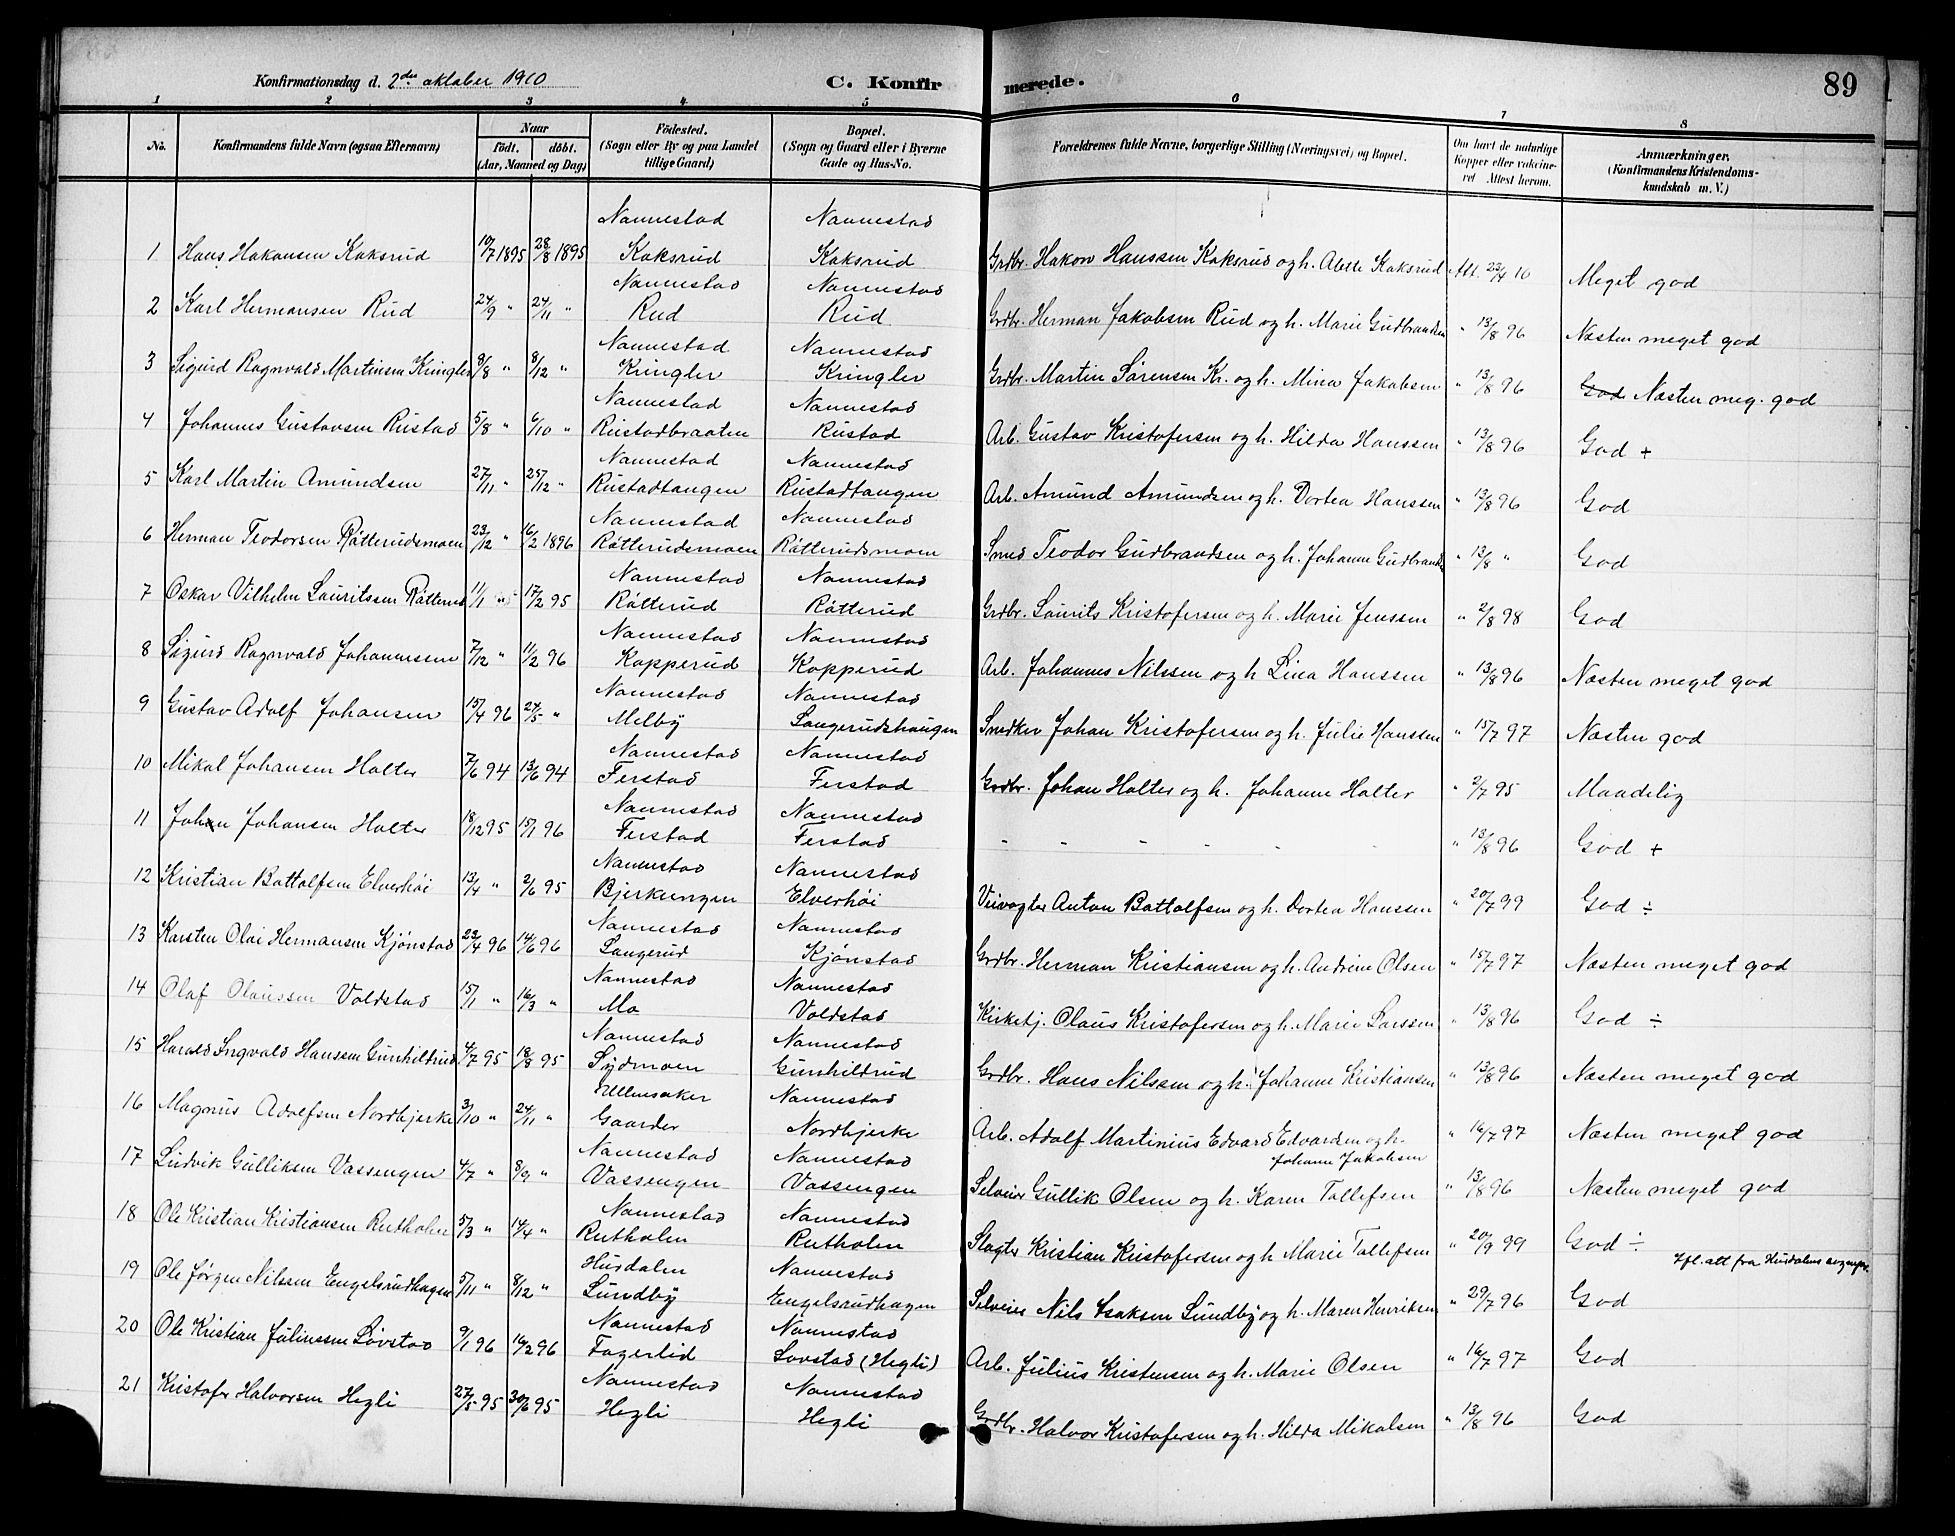 Konfirmationsdag d. 2den oktober 1910 C. Konfirmerede. 89
1 2 3 4 5 6 7 8
No. Konfirmandens fulde Navn (ogsaa Efternavn) Naar født. døbt. (Aar, Maaned og Dag) Fødested. (Sogn eller By og paa Landet tillige Gaard) Bopæl. (Sogn og Gaard eller i Byerne Gade og Hus-No. Forældrenes fulde Navne, borgerlige Stilling (Næringsvei) og Bopæl. Om havt de naturlige Kopper eller vakcineret Attest herom. Anmærkninger. (Konfirmandens Kristendomskundskab m. V.)
Nannestad Nannestad
1 Hans Hakonsen Koksrud 10/7 1895 28/8 1895 Koksrud Koksrud Grdbr. Hakon Hanssen Koksrud og h. Alette Koksrud Att. 23/4 10 Meget god
Nannestad Nannestad
2 Karl Hermansen Rud 24/9 " 24/11 " Rud Rud Grdbr. Herman Jakobsen Rud og h. Marie Gudbrandsen " 13/8 96 Næsten meget god
Nannestad Nannestad
3 Sigurd Ragnvald Martinsen Kringler 9/8 " 8/12 " Kringler Kringler Grdbr. Martin Sørensen Kr. og h. Mina Jakobsen " 13/8 96 God Næsten meg. god
Nannestad Nannestad
4 Johannes Gustavsen Rustad 5/8 " 6/10 " Rustadbraaten Rustad Arb. Gustav Kristofersen og h. Hilda Hanssen " 13/8 96 God +
Nannestad Nannestad
5 Karl Martin Amundsen 27/11 " 25/12 " Rustadtangen Rustadtangen Arb. Amund Amundsen og h. Dortea Hanssen " 13/8 96 God
Nannestad Nannestad
6 Herman Teodorsen Råtterudsmoen 23/12 " 16/2 1896 Råtterudsmoen Råtterudsmoen Smed Teodor Gudbrandsen og h. Johanne Gudbrands " 13/8 " God
Nannestad Nannestad
7 Oskar Vilhelm Lauritssen Råtterud 11/1 17/2 95 Råtterud Råtterud Grdbr. Laurits Kristofersen og h. Marie Jenssen " 2/8 98 God
Nannestad Nannestad
8 Sigurd Ragnvald Johannesen 7/12 " 11/2 96 Kopperud Kopperud Arb. Johannes Nilssen og h Lina Hanssen " 13/8 96 Næsten meget god
Nannestad Nannestad
9 Gustav Adolf Johansen 15/4 96 24/5 " Melby Langerudshaugen Snedker Johan Kristofersen og h. Julie Hanssen " 15/7 97 Næsten god
Nannestad Nannestad
10 Mikal Johansen Holter 7/6 94 13/6 94 Ferstad Ferstad Grdbr. Johan Holter og h. Johanne Holter " 2/7 95 Maadelig
Nannestad Nannestad
11 Johan Johansen Holter 18/12 95 15/1 96 Ferstad Ferstad - - - - - - " 13/8 96 God +
Nannestad Nannestad
12 Kristian Bottolfsen Elverhöi 13/4 " 2/6 95 Bjerkeengen Elverhöi Veivogter Anton Bottolfsen og h. Dortea Hanssen " 20/7 99 God ÷
Nannestad Nannestad
13 Karsten Olai Hermansen Kjønstad 23/4 96 14/6 96 Langerud Kjønstad Grdbr. Herman Kristiansen og h. Andrine Olsen " 15/7 97 Næsten meget god
Nannestad Nannestad
14 Olaf Olaussen Voldstad 15/1 " 16/3 " Mo Voldstad Kirketj. Olaus Kristofersen og h. Marie Larssen " 13/8 96 God ÷
Nannestad Nannestad
15 Harald Ingvald Hanssen Gunhildrud 4/7 95 18/8 95 Sydmoen Gunhildrud Grdbr. Hans Nilssen og h. Johanne Kristiansen " 13/8 96 Næsten meget god
Ullensaker Nannestad
16 Magnus Adolfsen Nordbjerke 3/10 " 24/11 " Gaarder Nordbjerke Arb. Adolf Martinius Edvard Edvardsen og h. " 16/7 97 Næsten meget god
Johanne Jakobsen
Nannestad Nannestad
17 Ludvik Gulliksen Vassengen 4/7 " 8/9 " Vassengen Vassengen Selveier Gullik Olsen og h. Karen Tollefsen " 13/8 96 Næsten meget god
Nannestad Nannestad
18 Ole Kristian Kristiansen Rutholen 5/3 " 14/4 " Rutholen Rutholen Slagter Kristian Kristofersen og h Marie Tollefsen " 20/9 99 God ÷
Hurdalen Nannestad Ifl. att fra Hurdalens sogepr.
19 Ole Jørgen Nilssen Engelsrudhagen 5/11 " 8/12 " Lundby Engelsrudhagen Selveier Nils Isaksen Lundby og h. Maren Henriksen " 29/7 96 God
Nannestad Nannestad
20 Ole Kristian Juliussen Lövstad 9/1 96 16/2 96 Fagerlid Lovstad (Hegli) Arb. Julius Kristensen og h. Marie Olsen " 16/7 97 God
Nannestad Nannestad
21 Kristofer Halvorsen Hegli 27/5 95 30/6 95 Hegli Hegli Grdbr. Halvor Kristofersen og h. Hilda Mikalsen " 13/8 96 God